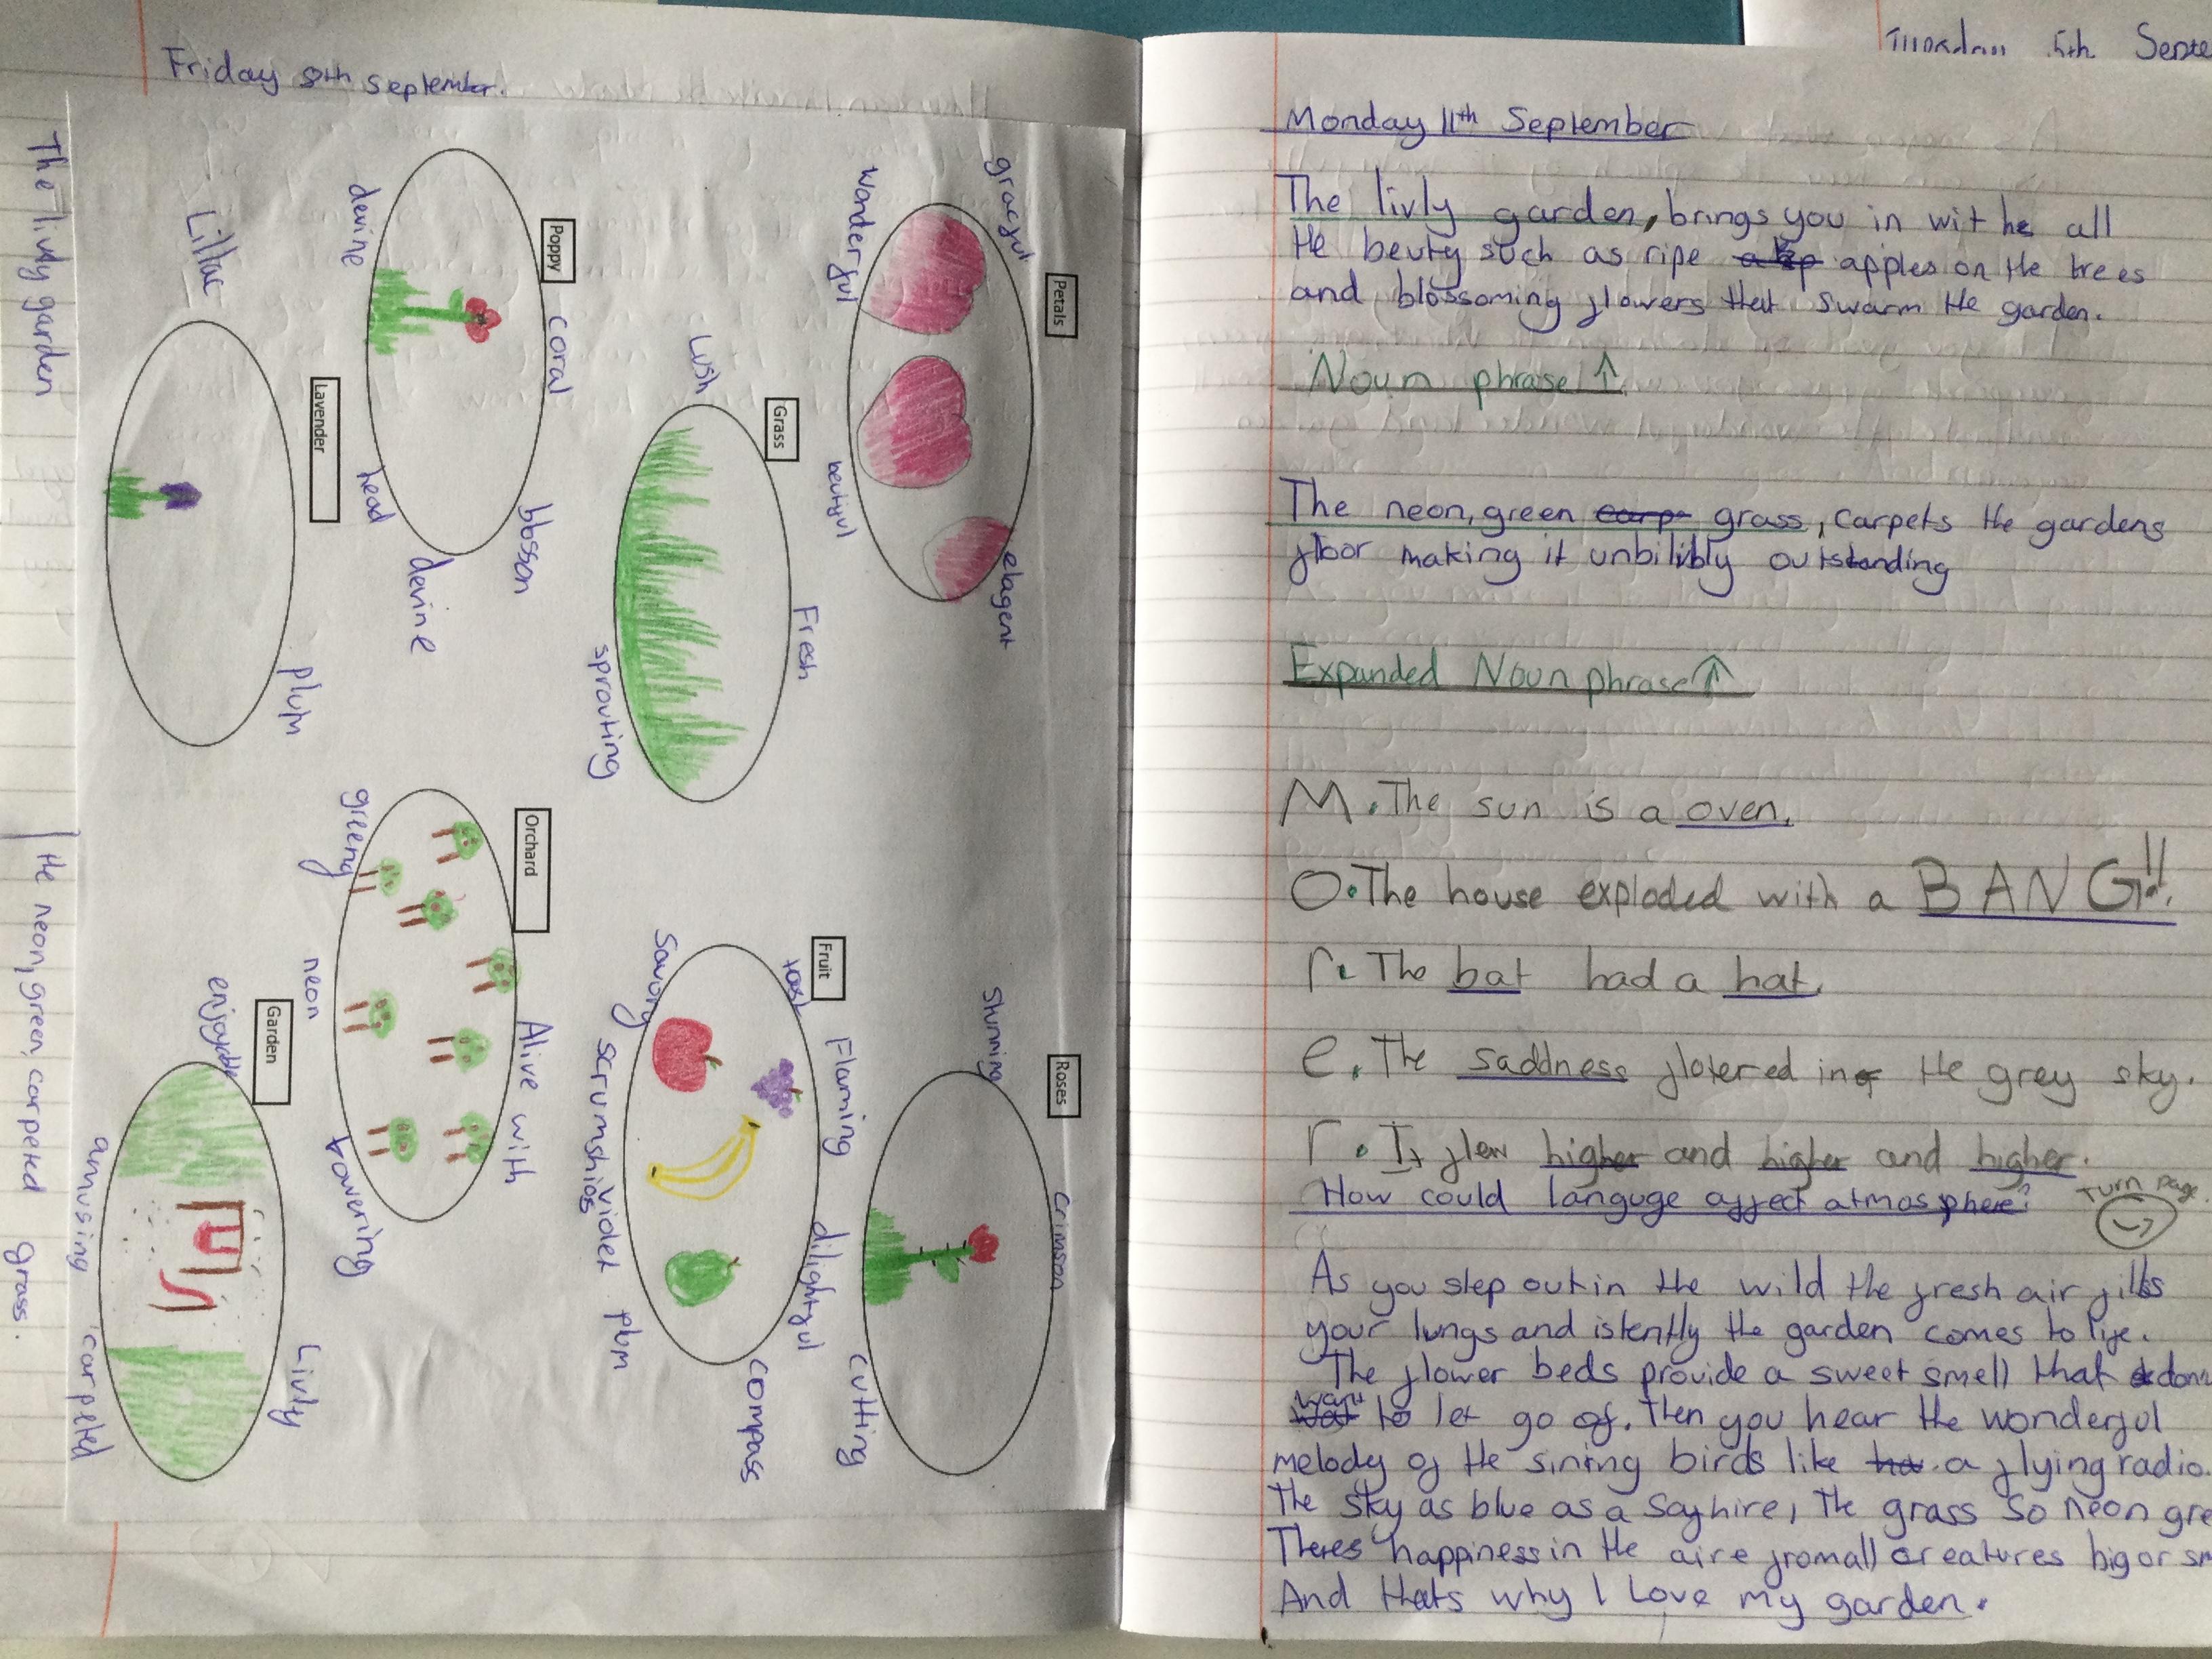 Friday 8th September.
Petals
graceful
wonderful
beutiful
elagent
Grass
Lush
Fresh
sprouting
Poppy
devine
coral
head
blosson
devine
Lavender
Lillac
plum
Roses
Stunning
Crimson
Flaming
cutting
Fruit
savory
scrumshios
violet plum
dilightful
compass
Orchard
greeny
neon
Alive with
towering
Garden
enjoyable
amusing
Livly
carpeted
The livly garden
the neon, green, carpeted grass.
Tuesday 5th Septe
Monday 11th September
The livly garden, brings you in wit he all
the beuty such as ripe apples on the trees
and blossoming flowers that swarm the garden.
Noun phrase ↑
The neon, green carp grass, carpets the gardens
floor making it unbilibly outstanding
Expanded Noun phrase ↑
M. The sun is a oven.
O. The house exploded with a BANG!!
r. The bat had a hat.
e. The saddness flotered in the grey sky.
r. It flew higher and higher and higher.
How could languge affect atmosphere?
Turn page
As you step out in the wild the fresh air fills
your lungs and istently the garden comes to life.
The flower beds provide a sweet smell that dont
want to let go of. Then you hear the wonderful
melody of the sining birds like a flying radio.
The sky as blue as a sayhire, the grass so neon gre
Theres happiness in the aire from all creatures big or sm
And thats why I Love my garden.